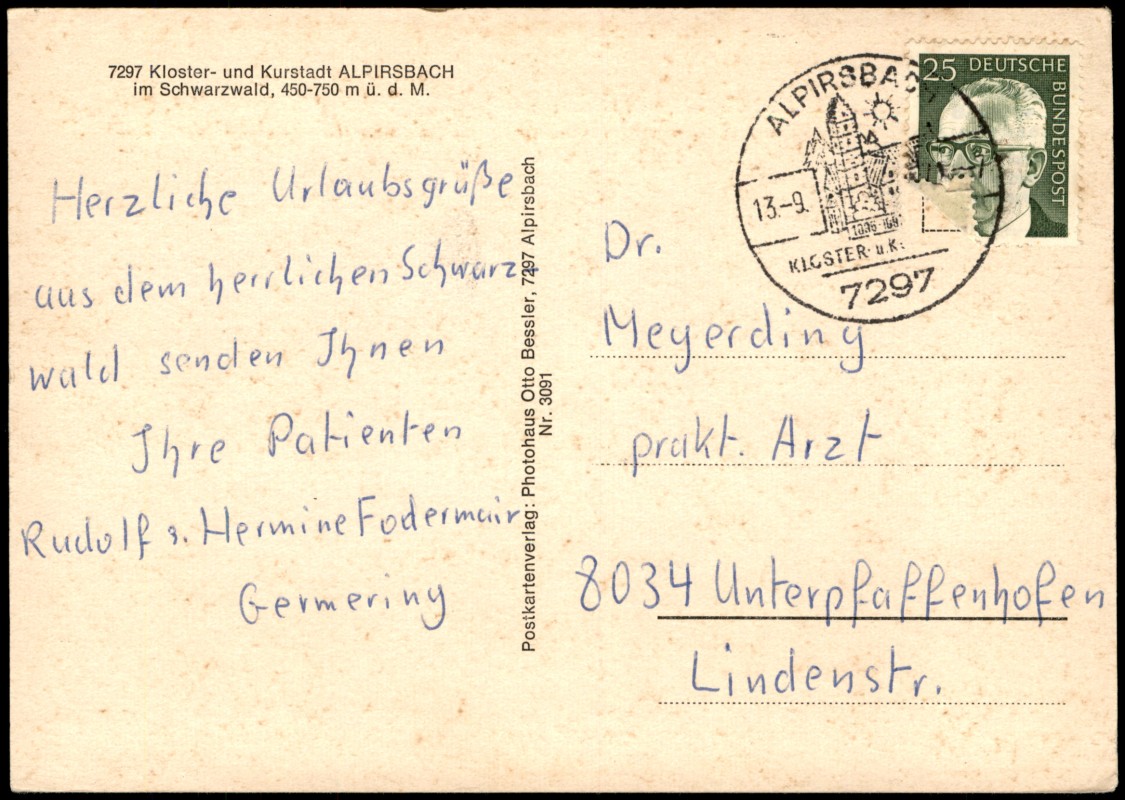 7297 Kloster- und Kurstadt ALPIRSBACH
im Schwarzwald, 450-750 m ü. d. M.
Herzliche Urlaubsgrüße
aus dem herrlichen Schwarz-
wald senden Ihnen
Ihre Patienten
Rudolf u. Hermine Fodermair
Germering
Postkartenverlag: Photohaus Otto Bessler, 7297 Alpirsbach
Nr. 3091
ALPIRSBACH
13.-9.
KLOSTER- u. K
7297
25 DEUTSCHE
BUNDESPOST
Dr.
Meyerding
prakt. Arzt
8034 Unterpfaffenhofen
Lindenstr.